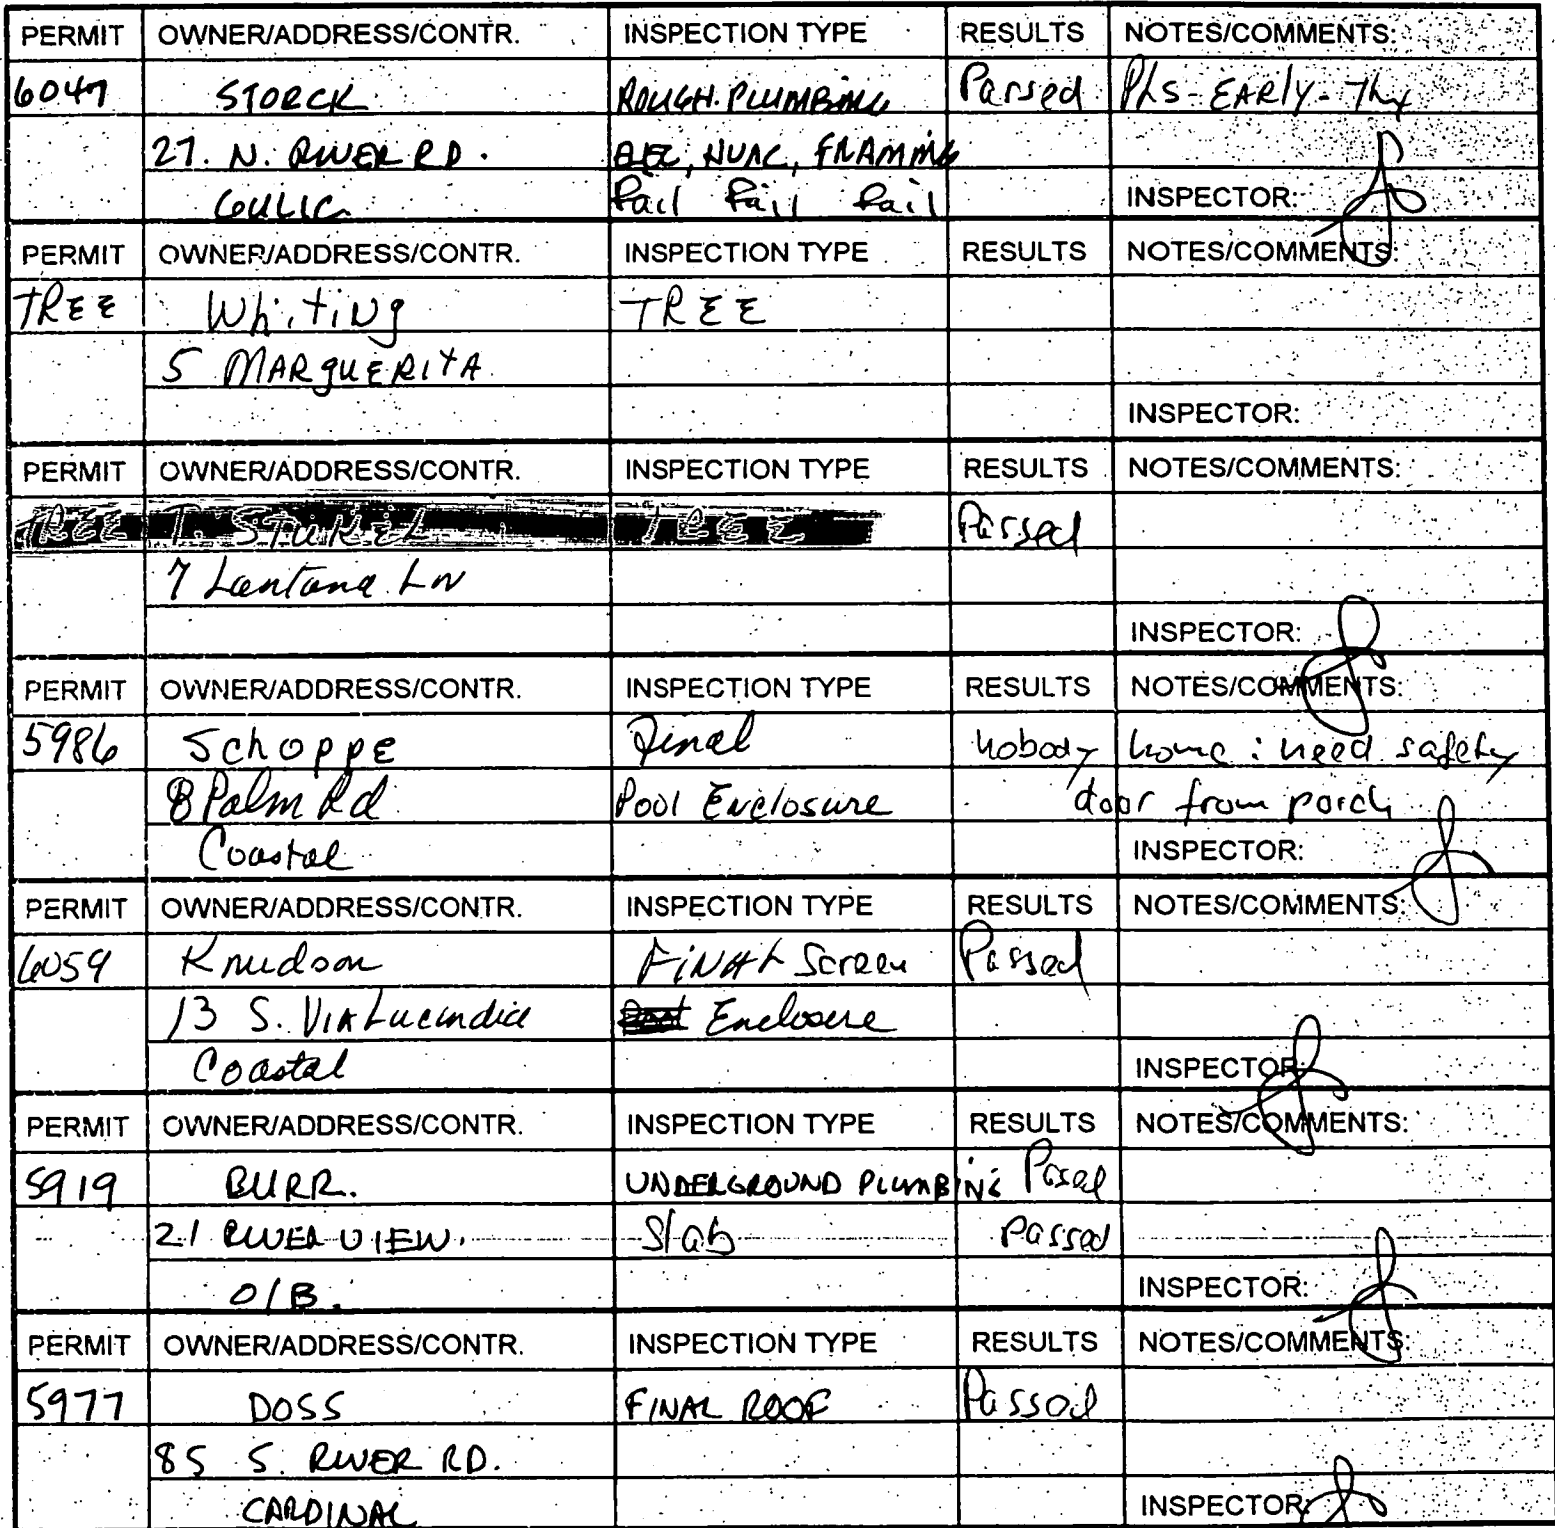 PERMIT OWNER/ADDRESS/CONTR. INSPECTION TYPE RESULTS NOTES/COMMENTS:
6047 STORCK ROUGH PLUMBING Passed Pls - EARLY - Thx
27. N. RIVER RD. ELEC, HVAC, FRAMING
GULIC fail fail fail INSPECTOR:
PERMIT OWNER/ADDRESS/CONTR. INSPECTION TYPE RESULTS NOTES/COMMENTS:
TREE Whiting TREE
5 MARguERITA
INSPECTOR:
PERMIT OWNER/ADDRESS/CONTR. INSPECTION TYPE RESULTS NOTES/COMMENTS:
TREE T. TREE Passed
7 Lantana Ln
INSPECTOR:
PERMIT OWNER/ADDRESS/CONTR. INSPECTION TYPE RESULTS NOTES/COMMENTS:
5986 Schoppe Final nobody home : need safety
8 Palm Rd Pool Enclosure door from porch
Coastal INSPECTOR:
PERMIT OWNER/ADDRESS/CONTR. INSPECTION TYPE RESULTS NOTES/COMMENTS:
6059 Knudson FINAL Screen Passed
13 S. VIA Lucindia Enclosure
Coastal INSPECTOR:
PERMIT OWNER/ADDRESS/CONTR. INSPECTION TYPE RESULTS NOTES/COMMENTS:
5919 BURR. UNDERGROUND PLUMBING Passed
21 RIVER VIEW. Slab Passed
O/B. INSPECTOR:
PERMIT OWNER/ADDRESS/CONTR. INSPECTION TYPE RESULTS NOTES/COMMENTS:
5977 DOSS FINAL ROOF Passed
85 S. RIVER RD.
CARDINAL INSPECTOR: